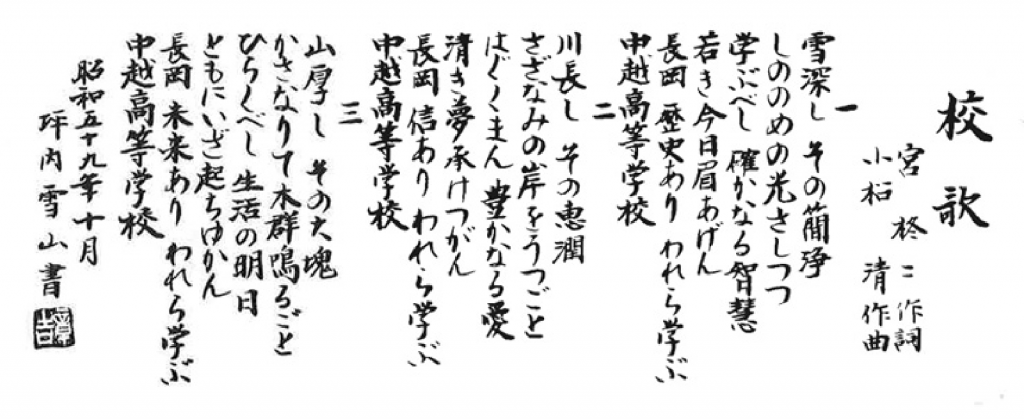 校歌
宮 柊二 作詞
小松 清 作曲
一
雪深し その簡浄
しののめの光さしつつ
学ぶべし 確かなる智慧
若き今日眉あげん
長岡 歴史あり われら学ぶ
中越高等学校
二
川長し その恵潤
さざなみの岸をうつごと
はぐくまん 豊かなる愛
清き夢承けつがん
長岡 信あり われら学ぶ
中越高等学校
三
山厚し その大塊
かさなりて木群鳴るごと
ひらくべし 生活の明日
ともにいざ起ちゆかん
長岡 未来あり われら学ぶ
中越高等学校
昭和五十九年十月
坪内雪山書